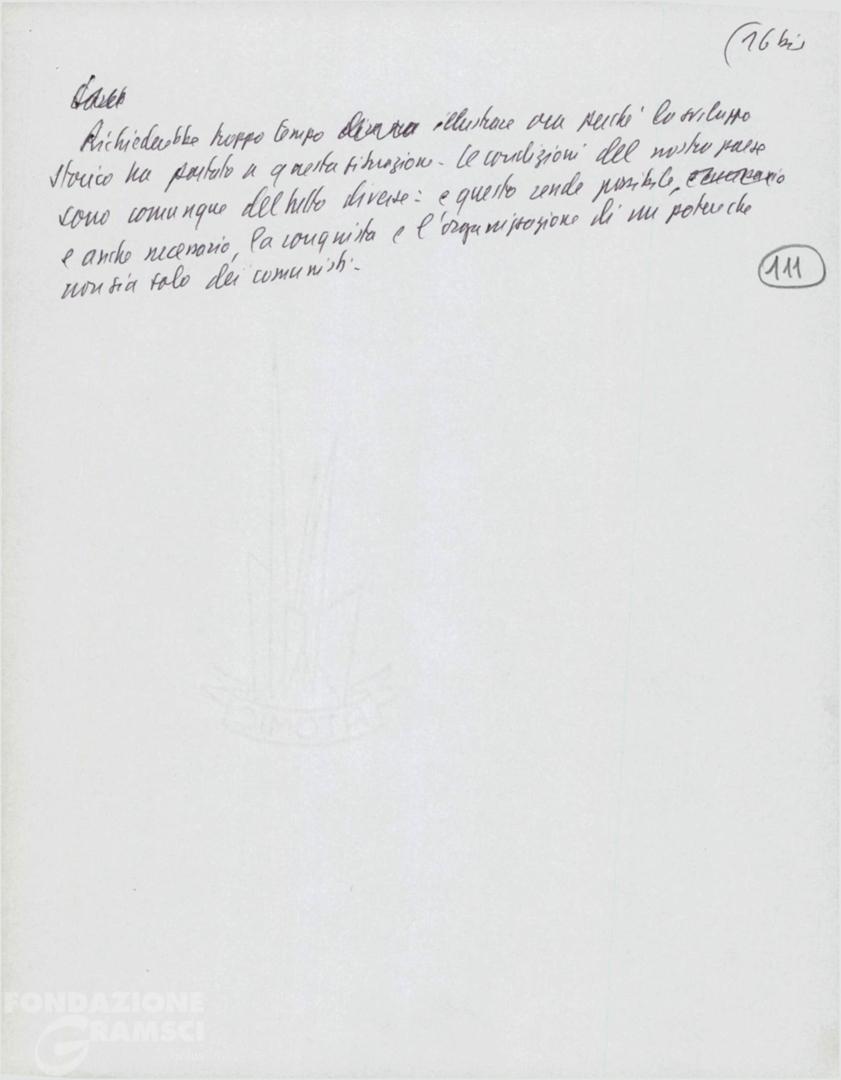 (16 bis
Richiederebbe troppo tempo illustrare ora perché lo sviluppo
storico ha portato a questa situazione. Le condizioni del nostro paese
sono comunque del tutto diverse: e questo rende possibile,
e anche necessario, la conquista e l'organizzazione di un potere che
non sia solo dei comunisti.
111
ATOMIC
FONDAZIONE
GRAMSCI